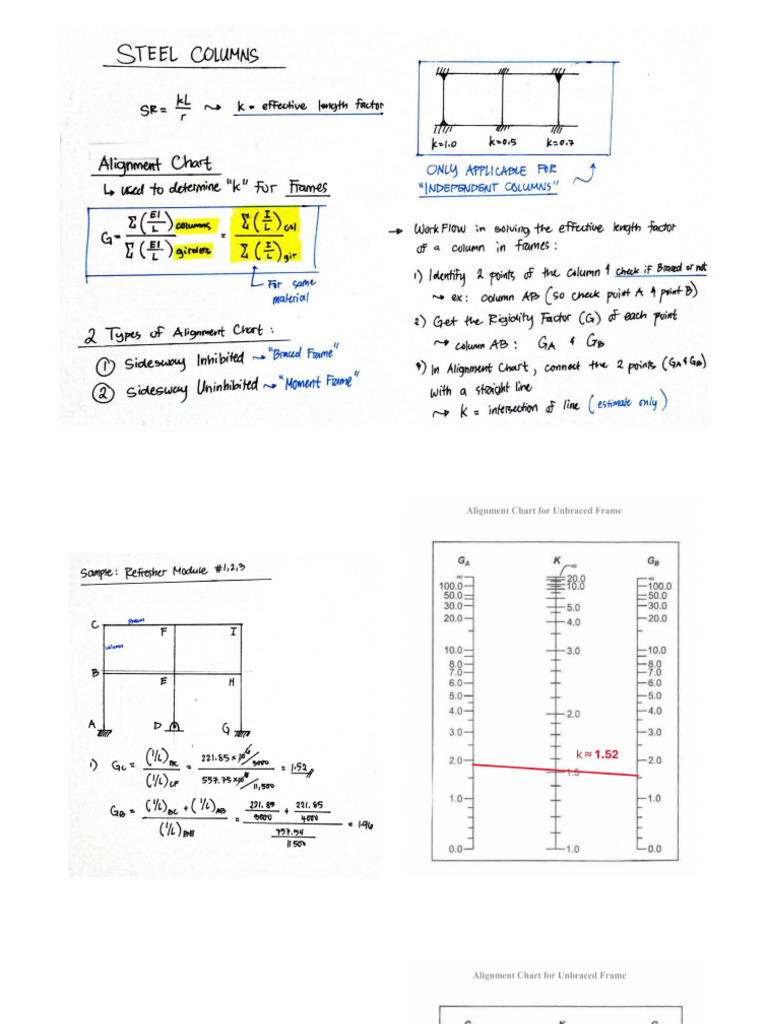 STEEL COLUMNS
SR = kL/r ~> k = effective length factor
Alignment Chart
↳ used to determine "k" for Frames
G = Σ(EI/L)columns / Σ(EI/L)girder = Σ(I/L)col / Σ(I/L)gir
For same
material
2 Types of Alignment Chart:
① Sidesway Inhibited ~> "Braced Frame"
② Sidesway Uninhibited ~> "Moment Frame"
k=1.0 k=0.5 k=0.7
ONLY APPLICABLE FOR
"INDEPENDENT COLUMNS"
→ Work Flow in solving the effective length factor
of a column in frames:
1) Identify 2 points of the column & check if Braced or not
~> ex: column AB (so check point A & point B)
2) Get the Rigidity Factor (G) of each point
~> column AB: GA & GB
3) In Alignment Chart, connect the 2 points (GA & GB)
with a straight line
~> k = intersection of line (estimate only)
Sample: Refresher Module #1,2,3
C F I
column
B E H
A D G
1) GC = (I/L)BC / (I/L)CF = 221.85×10⁶/3000 / 557.75×10⁶/11,500 = 1.52
GB = (I/L)BC + (I/L)AB / (I/L)BE = 221.85/3000 + 221.85/4000 / 757.54/11500 = 1.96
Alignment Chart for Unbraced Frame
GA K GB
∞ ∞ ∞
100.0 20.0 100.0
50.0 10.0 50.0
30.0 5.0 30.0
20.0 4.0 20.0
10.0 3.0 10.0
8.0 8.0
7.0 7.0
6.0 6.0
5.0 5.0
4.0 2.0 4.0
3.0 3.0
k ≈ 1.52
2.0 1.5 2.0
1.0 1.0
0.0 1.0 0.0
Alignment Chart for Unbraced Frame